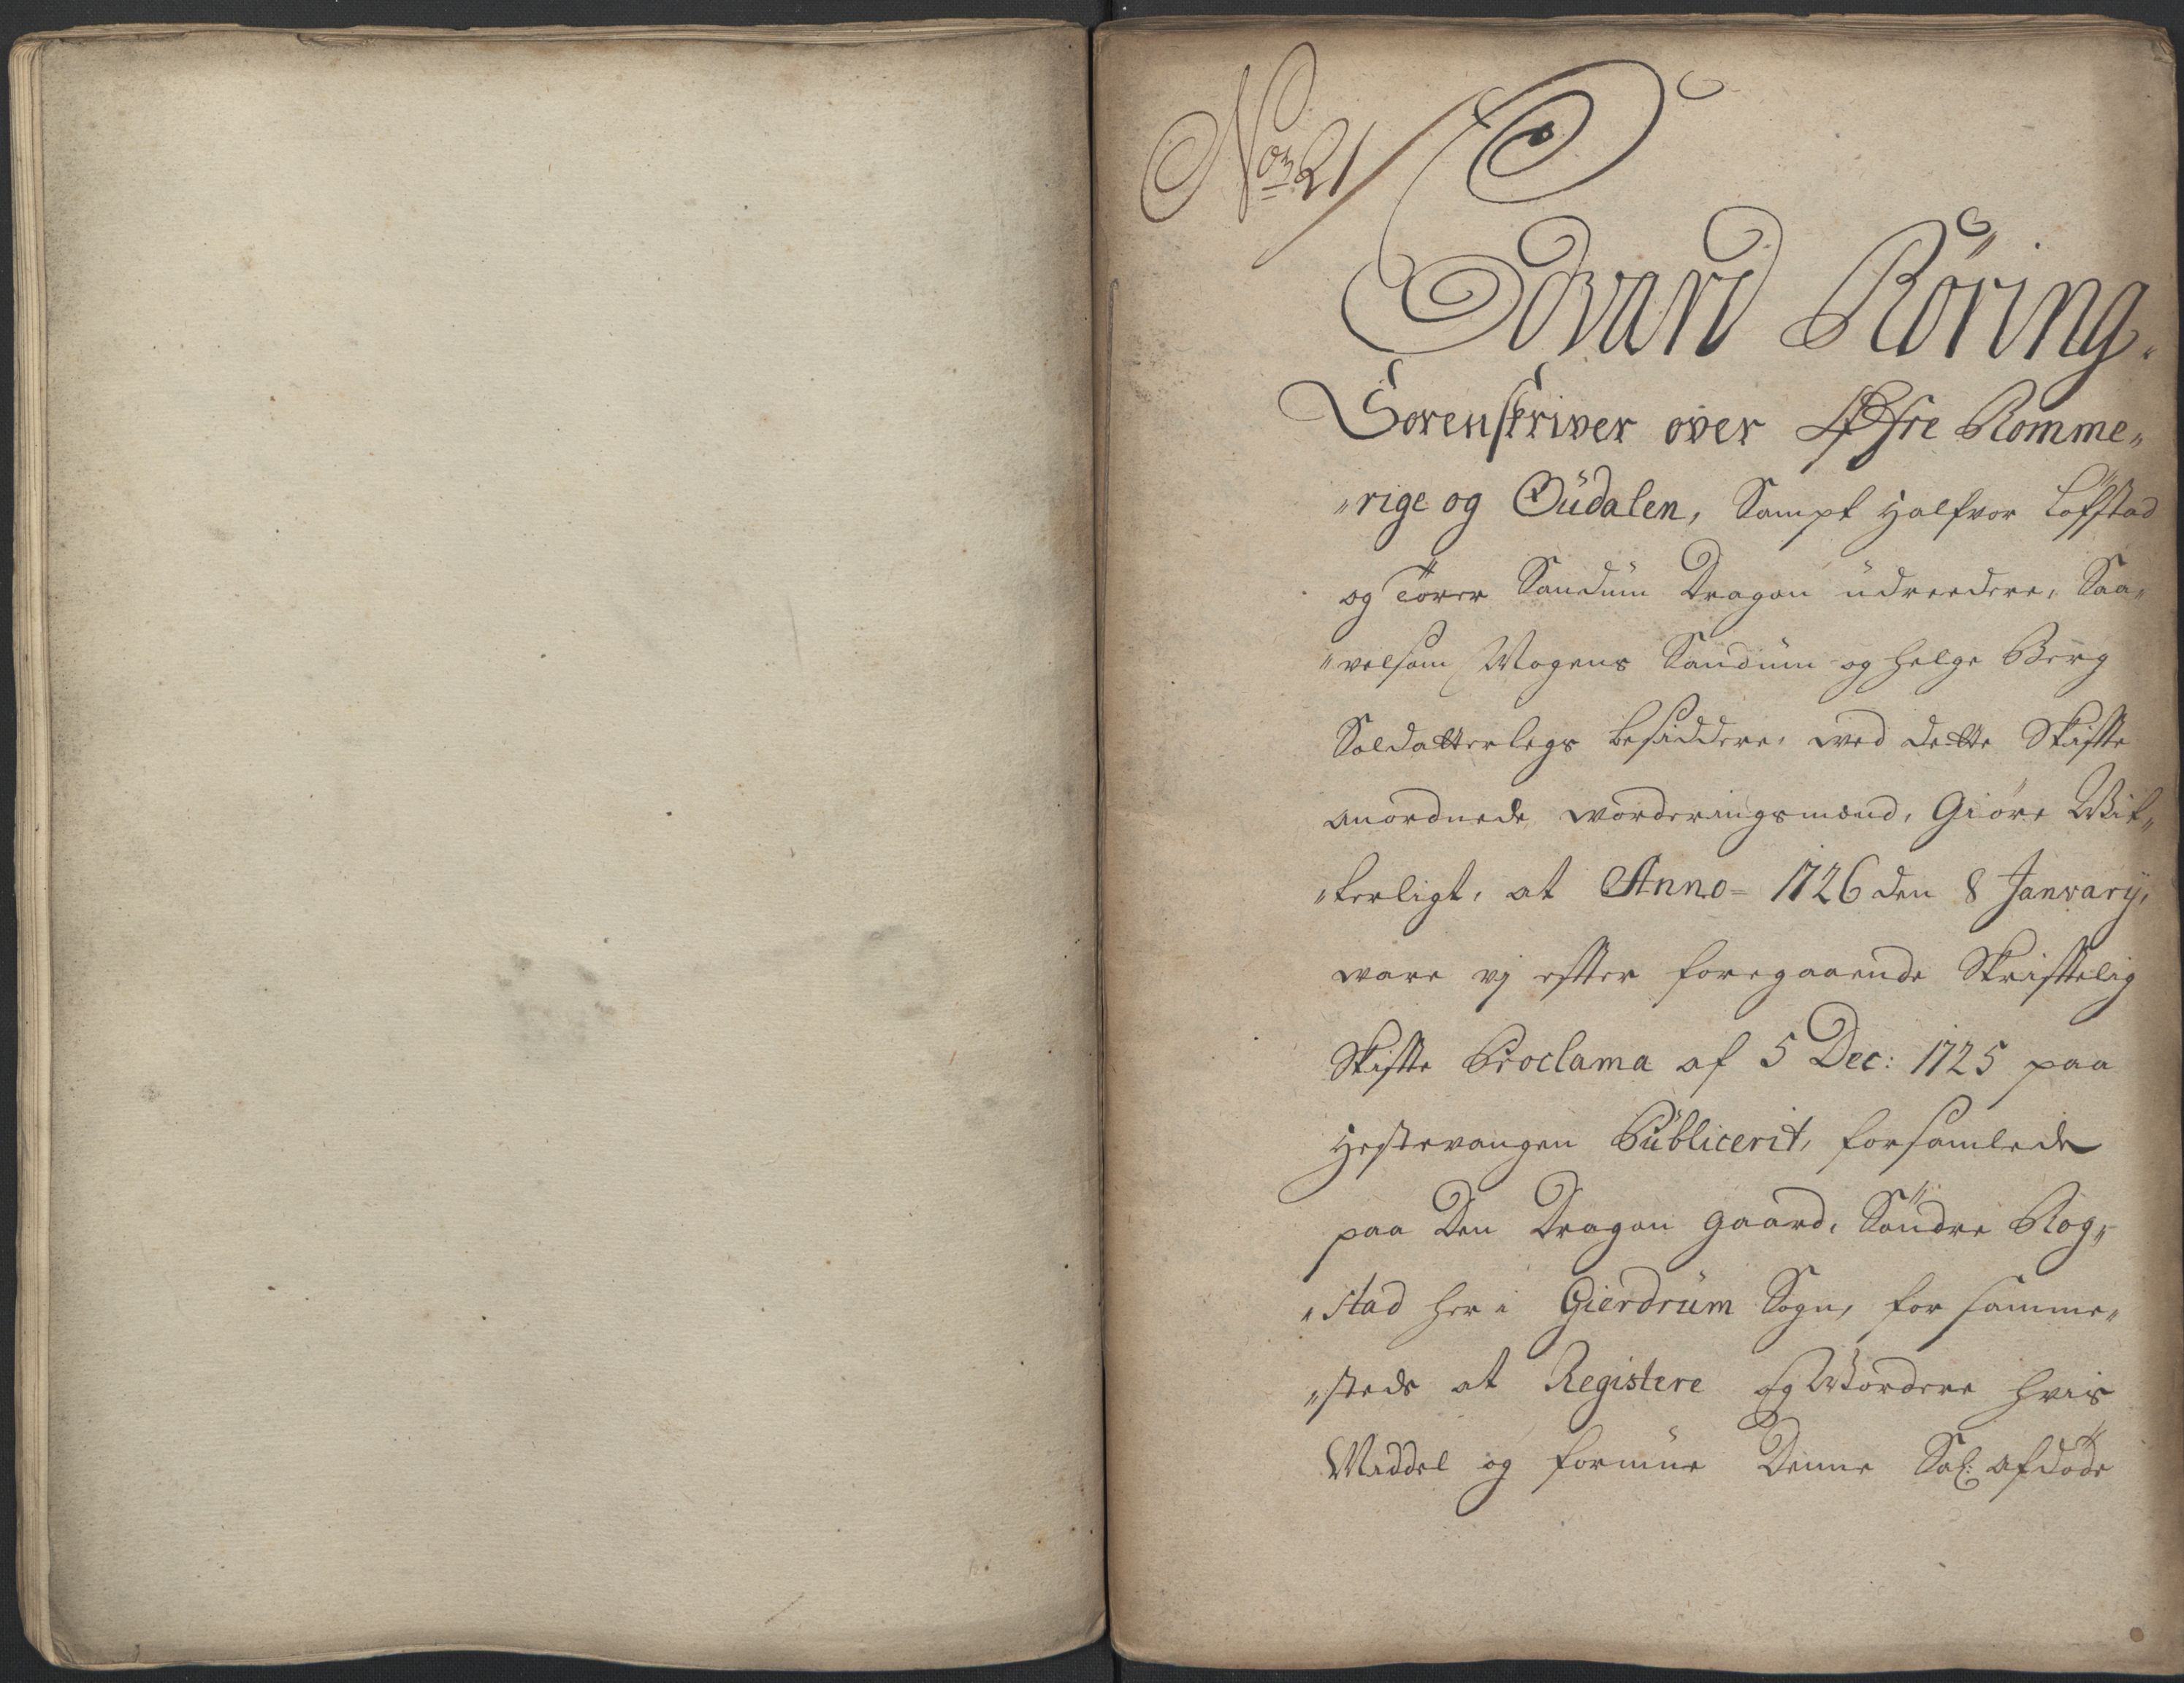 No 21
Edvard Röring.
Sorenskriver over Øfre Romme„
„rige og Oüdalen, Sampt Halfvor Löfstad
og Törer Sandüm Dragon üdreedere, Saa„
„velsom Mogens Sandüm og Helge Berg
Soldatterlegs besiddere, ved dette Skiffte
anordnede vorderingsmænd, Giöre Wit„
„terligt, at Anno= 1726 den 8 Janvarij,
vare vj effter foregaaende Skrifftelig
Skiffte Proclama af 5 Dec: 1725 paa
Hestevangen Püblicerit, forsamlede
paa Den Dragon gaard, Söndre Rog„
„stad her i Gierdrüm Sogn, for samme„
„steds at Registere og Vordere hvis
Middel og formüe Denne Sal: afdöde